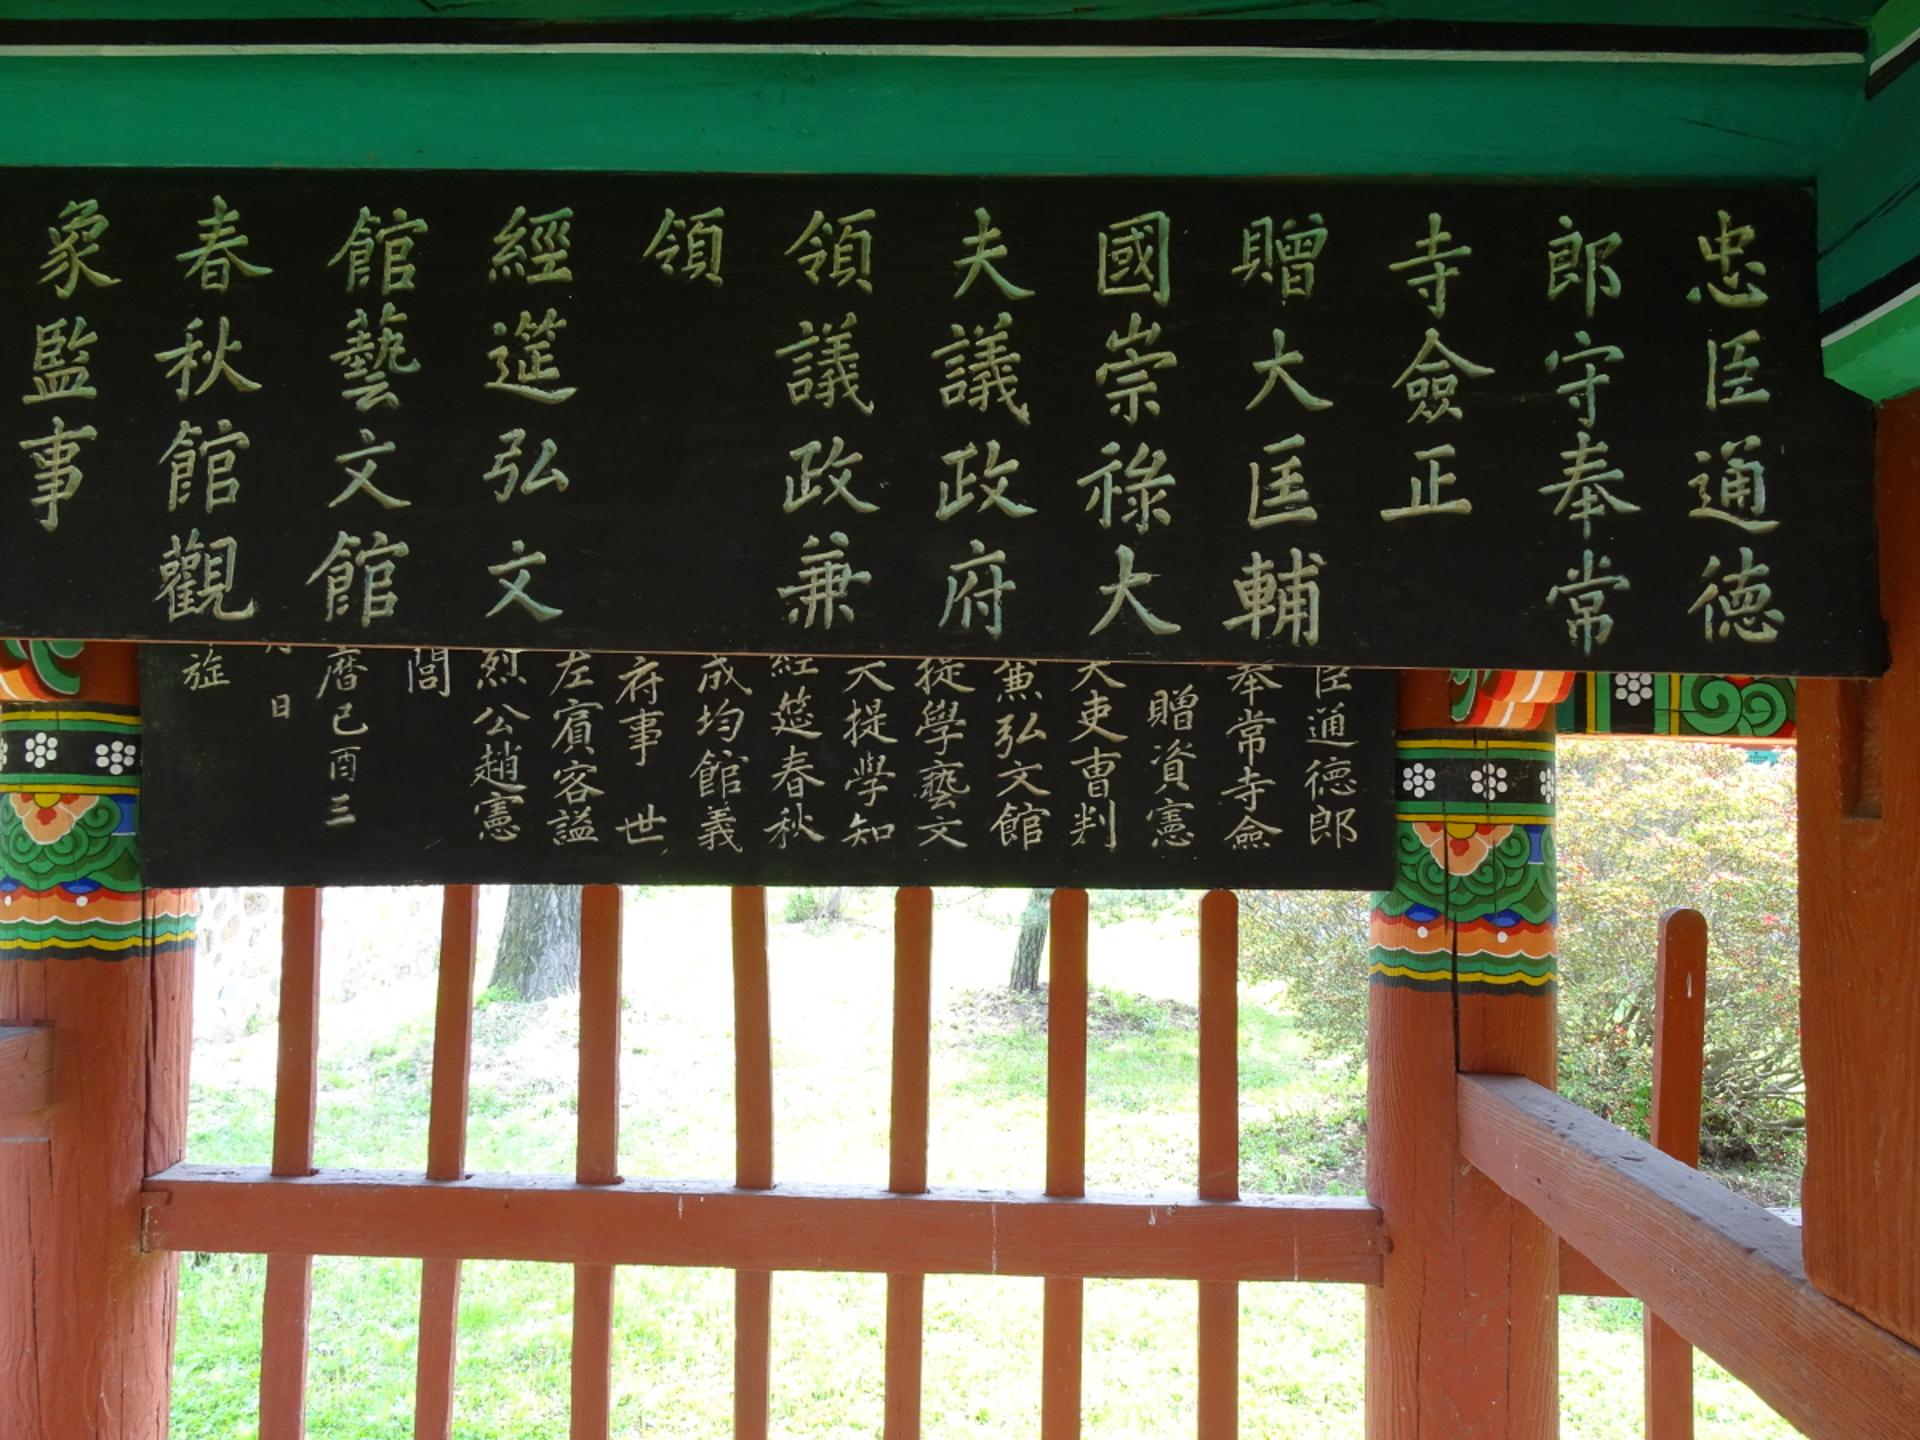 忠臣通德
郎守奉常
寺僉正
贈大匡輔
國崇祿大
夫議政府
領議政兼
領
經筵弘文
館藝文館
春秋館觀
象監事
臣通德郎
奉常寺僉
贈資憲
大吏曺判
兼弘文館
提學藝文
大提學知
經筵春秋
成均館義
府事 世
左賓客謚
烈公趙憲
閭
曆己酉三
月 日
旌